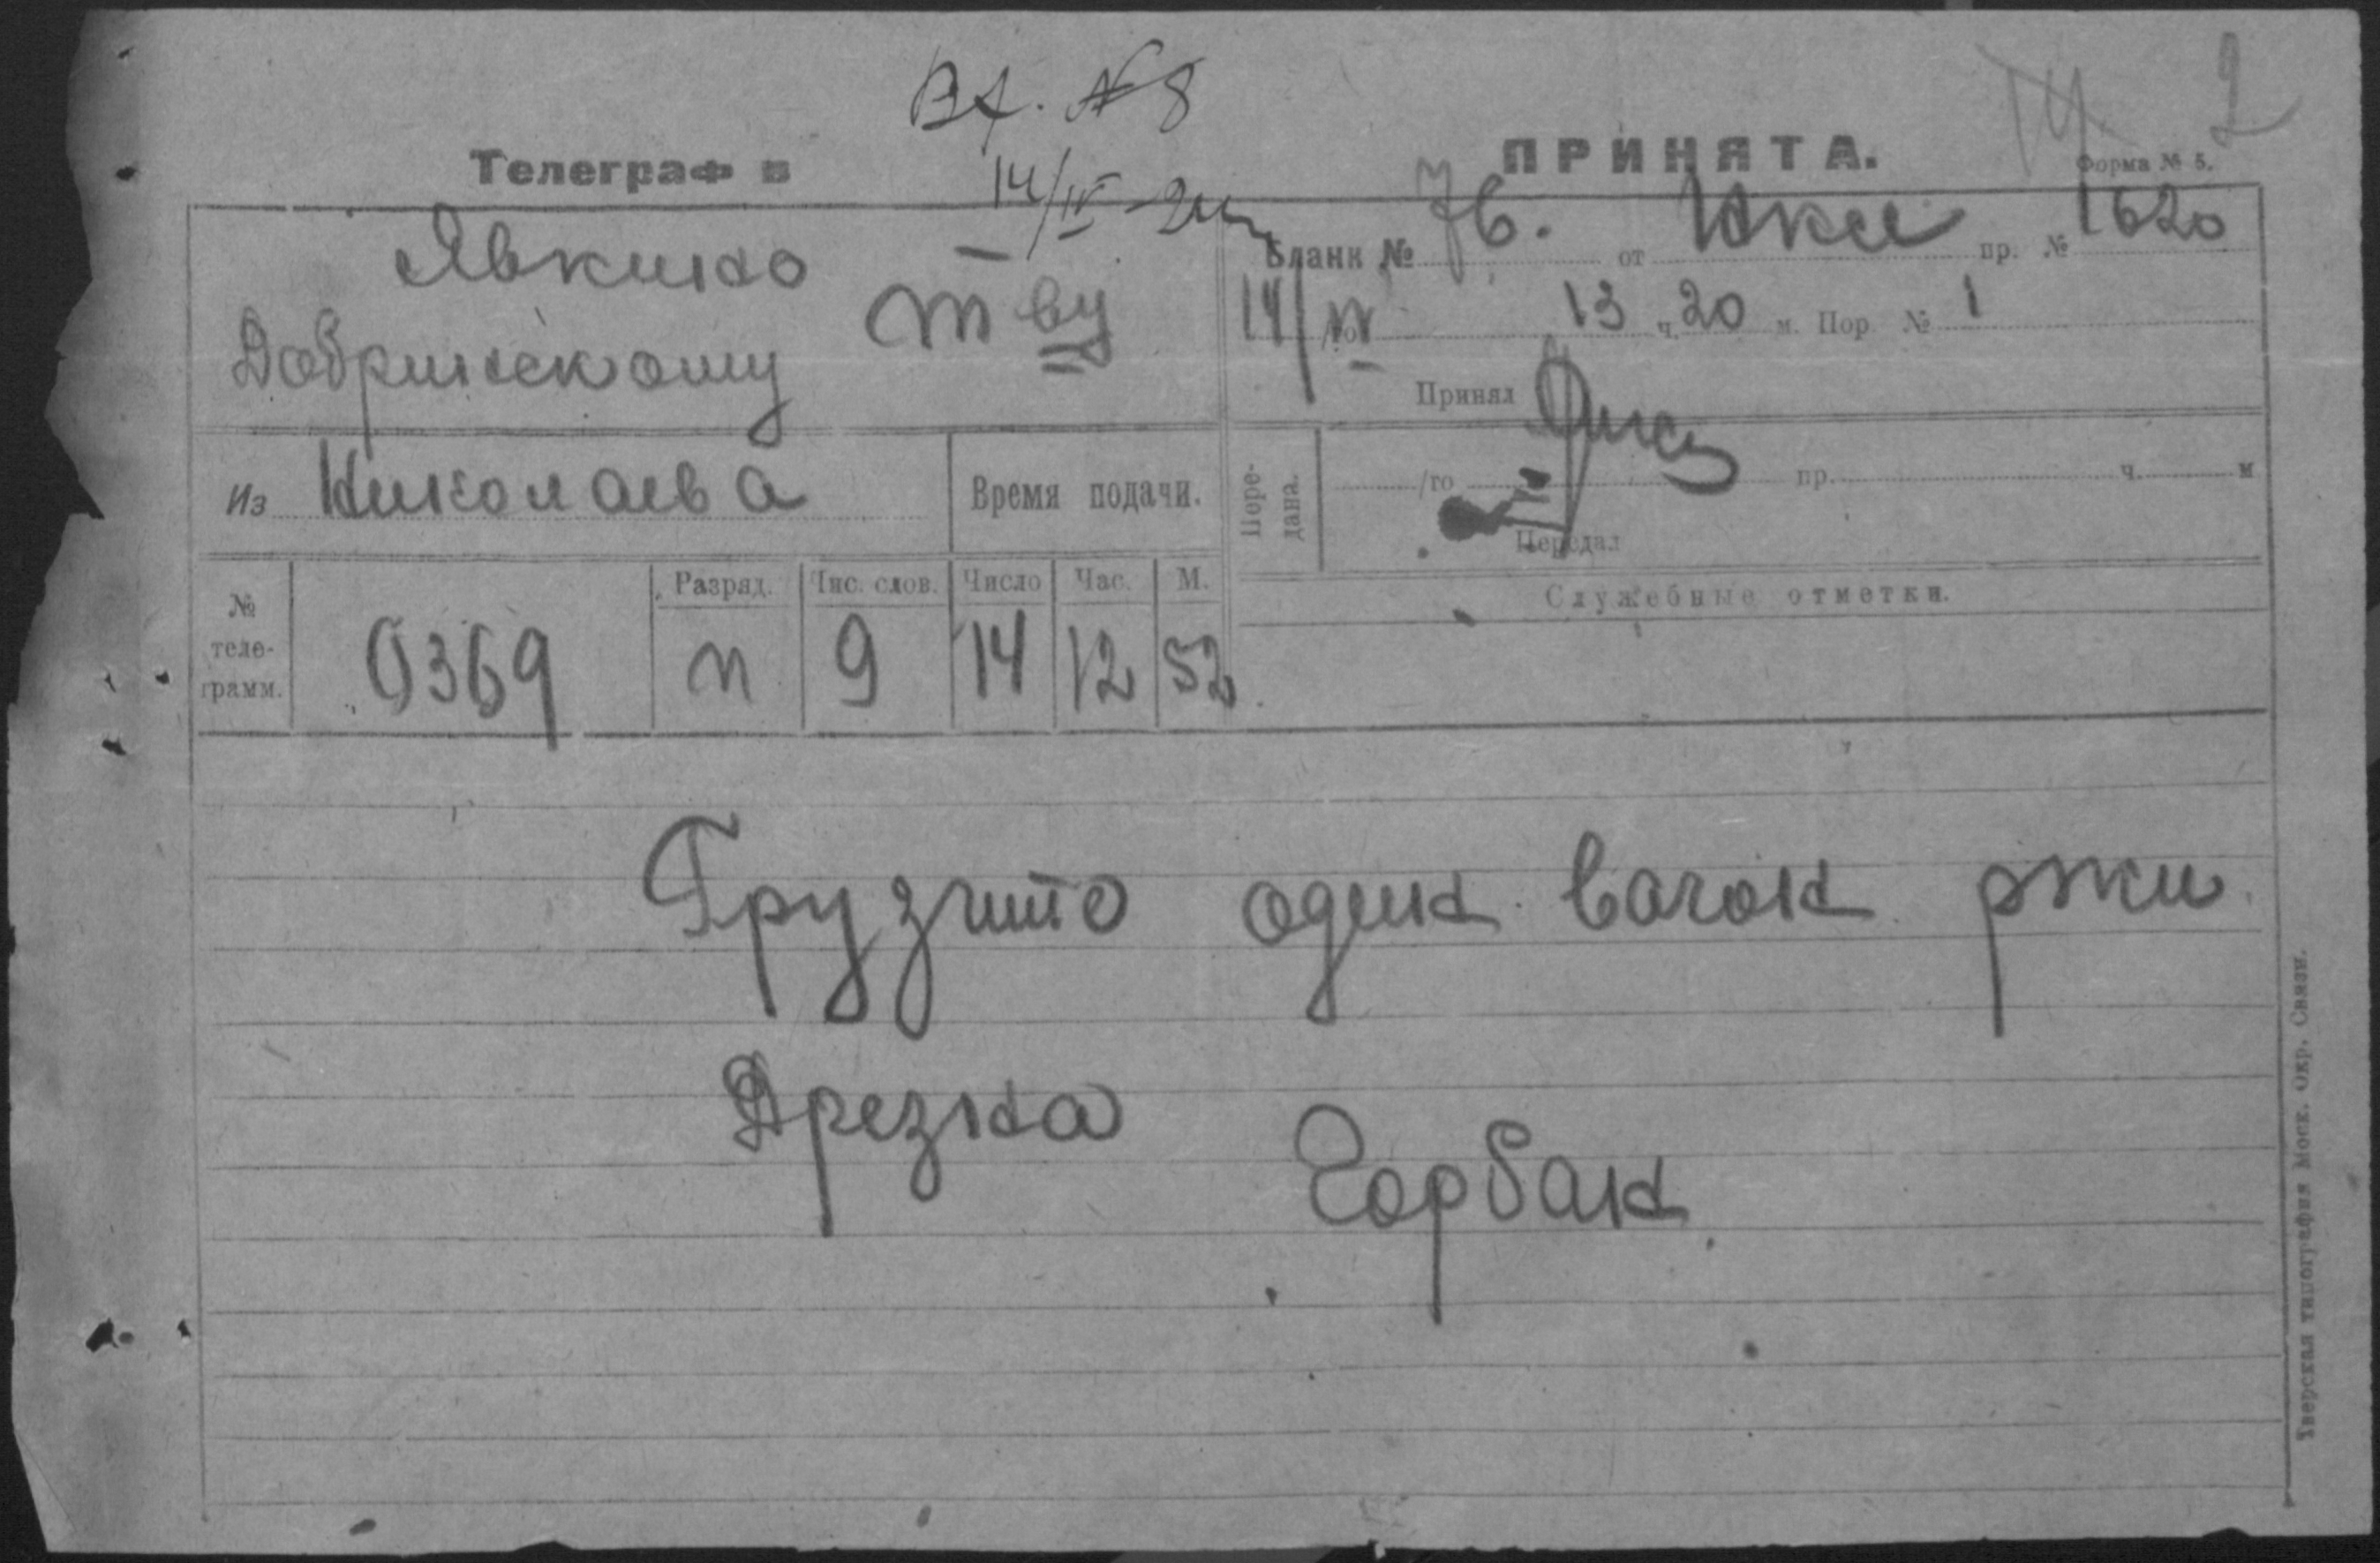 Вх. № 8
14/IV-24
2
Телеграф в
ПРИНЯТА.
Форма № 5.
Явкино
Добринскому
Бланк № 76. от Нкл пр. № 1620
14/IV /го 13 ч. 20 м. Пор № 1
Принял
Из Николаева
Время подачи.
Пере-
дана.
/го пр. ч. м
Передал
Служебные отметки.
№
теле-
грамм.
Разряд. Чис. слов. Число Час. М.
0369 п 9 14 12 52
Грузите один вагон ржи
Дрезна
Горбан
Тверская типография Моск. Окр. Связи.